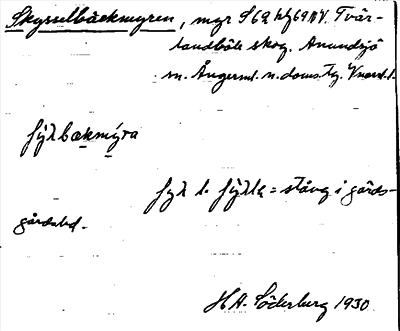 Skysselbäckmyren, myr S62 h/69NV. Tvär-
landböle skog. Anundsjö
sn. Ångerml. n. doms. tg. Vnord. l.
fýxlbækmýra
fyxl l. fýxla = stång i gärds-
gårdsled.
H.A. Söderberg 1930